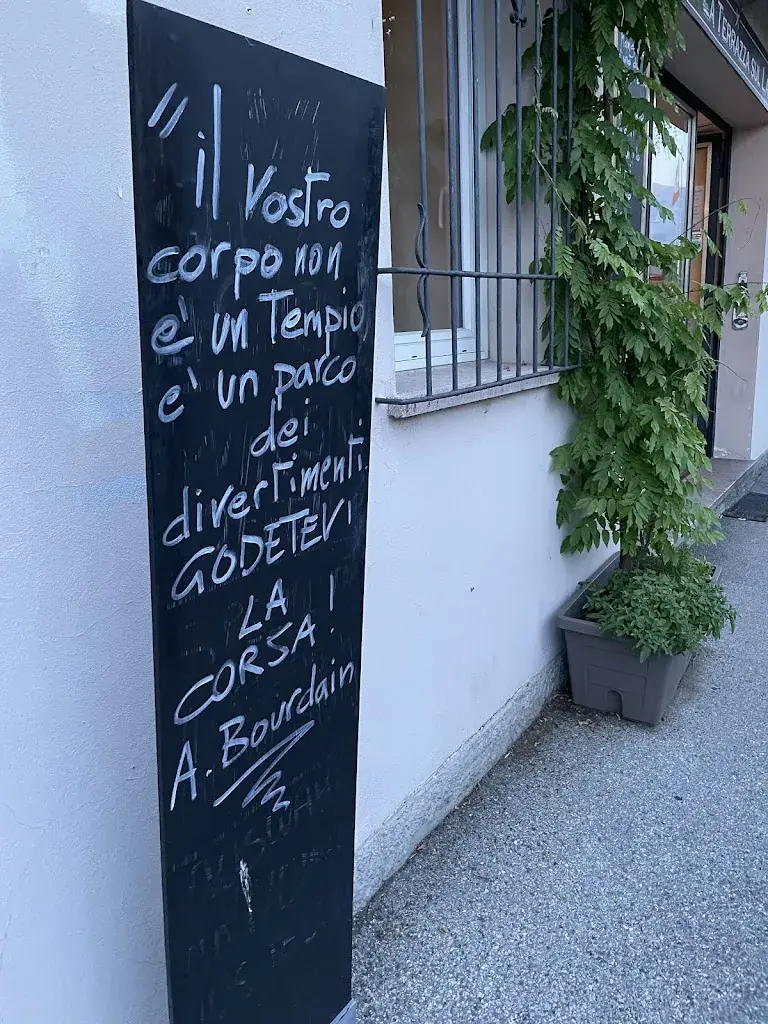 " il Vostro
corpo non
e' un Tempio
e' un parco
dei
divertimenti
GODETEVI
LA
CORSA!
A. Bourdain
LA TERRAZZA SUL